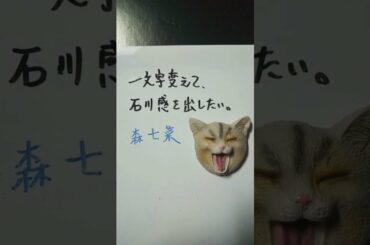 一文字変えて、
石川感を出したい。
森七菜